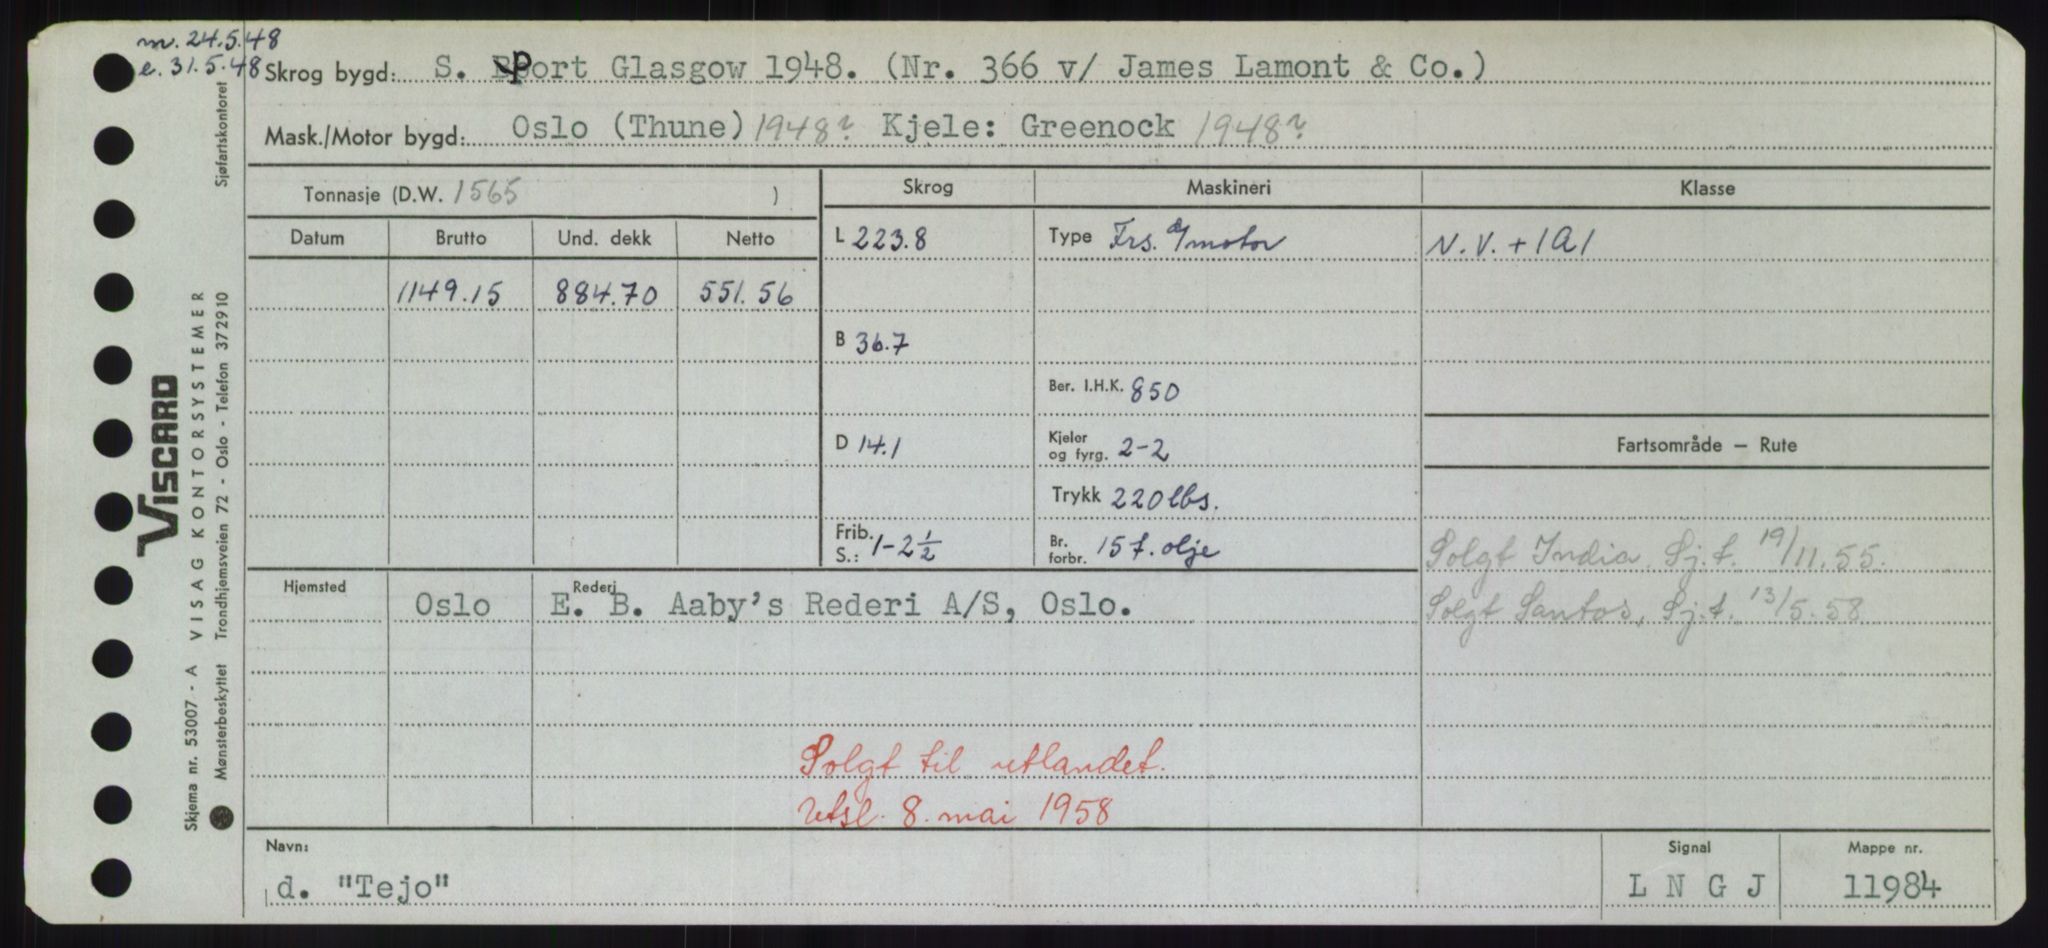 m. 24.5.48
e. 31.5.48
Skrog bygd: S. Port Glasgow 1948. (Nr. 366 v/ James Lamont & Co.)
Mask./Motor bygd: Oslo (Thune) 1948? Kjele: Greenock 1948?
Tonnasje (D.W. 1565 )
Skrog Maskineri Klasse
Datum Brutto Und. dekk Netto
L 223.8 Type Frs. d/motor N.V. + 1A1
1149.15 884.70 551.56
B 36.7
Ber. I.H.K. 850
D 14.1 Kjeler og fyrg. 2-2 Fartsområde — Rute
Trykk 220 lbs.
Frib. S.: 1-2½ Br. forbr. 15 t. olje Solgt India, Sj.t. 19/11.55.
Hjemsted Rederi
Oslo E. B. Aaby's Rederi A/S, Oslo. Solgt Santos, Sj.t. 13/5.58
Solgt til utlandet.
Utsl. 8. mai 1958
Navn: Signal Mappe nr.
d. "Tejo" L N G J 11984
VISCARD
VISAG KONTORSYSTEMER
Skjema nr. 53007 - A
Mønsterbeskyttet Trondhjemsveien 72 - Oslo - Telefon 372910
Sjøfartskontoret